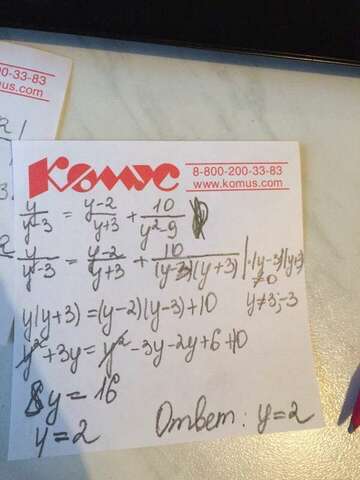 -200-33-83
omus.com
Комус
8-800-200-33-83
www.komus.com
y/y-3 = y-2/y+3 + 10/y²-9
y/y-3 = y-2/y+3 + 10/(y-3)(y+3) | ·(y-3)(y+3)
≠0
y(y+3) = (y-2)(y-3)+10
y≠3;-3
y²+3y = y²-3y-2y+6+10
8y = 16
y = 2
Ответ: y=2